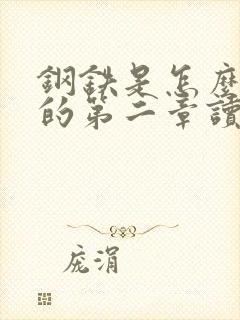 鋼鉄是怎麼
的第二章讀
庞涓